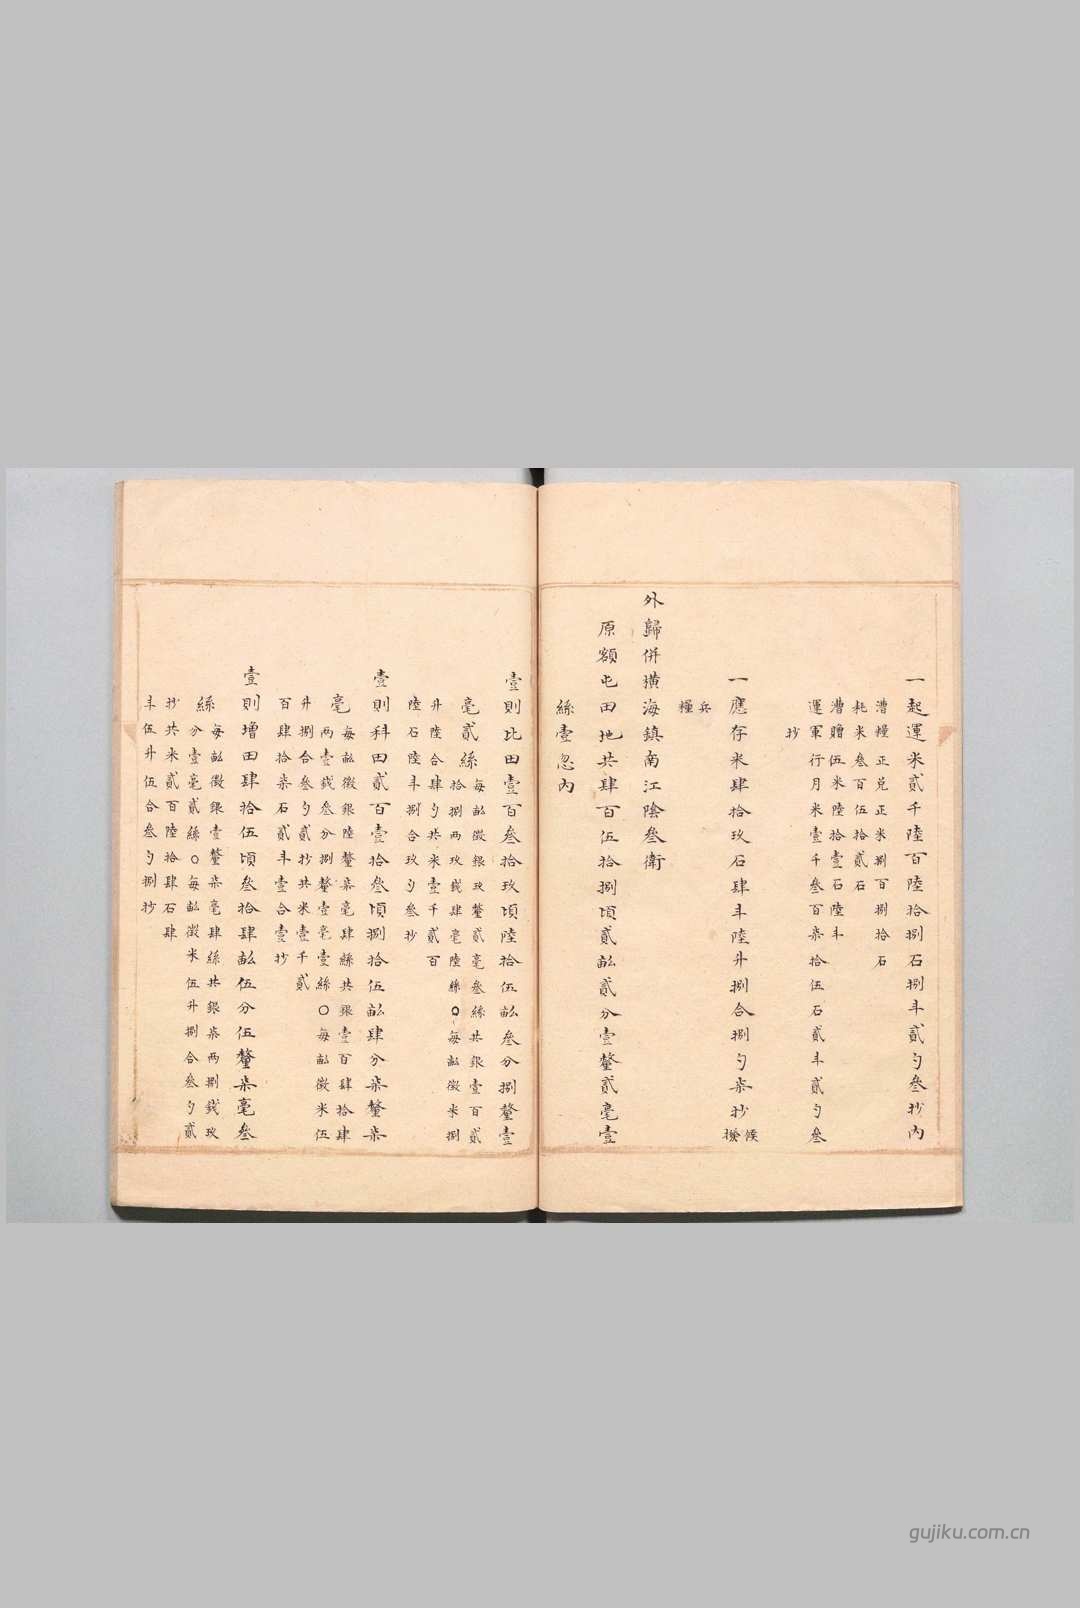 一起運米貳千陸百陸拾捌石捌斗貳勺叁抄內
漕糧正兌正米捌百捌拾石
耗米叁百伍拾貳石
漕贈伍米陸拾壹石陸斗
運軍行月米壹千叁百柒拾伍石貳斗貳勺叁
抄
一應存米肆拾玖石肆斗陸升捌合捌勺柒抄候
撥
兵
糧
外歸併橫海鎮南江陰叁衛
原額屯田地共肆百伍拾捌頃貳畝貳分壹釐貳毫壹
絲壹忽內
壹則比田壹百叁拾玖頃陸拾伍畝叁分捌釐壹
毫貳絲
每畝徵銀玖釐貳毫叁絲共銀壹百貳
拾捌兩玖錢肆毫陸絲〇每畝徵米捌
升陸合肆勺共米壹千貳百
陸石陸斗捌合玖勺叁抄
壹則科田貳百壹拾叁頃捌拾伍畝肆分柒釐柒
毫
每畝徵銀陸釐柒毫肆絲共銀壹百肆拾肆
兩壹錢叁分捌釐壹毫壹絲〇每畝徵米伍
升捌合叁勺貳抄共米壹千貳
百肆拾柒石貳斗壹合壹抄
壹則增田肆拾伍頃叁拾肆畝伍分伍釐柒毫叁
絲
每畝徵銀壹釐柒毫肆絲共銀柒兩捌錢玖
分壹毫貳絲〇每畝徵米伍升捌合叁勺貳
抄共米貳百陸拾肆石肆
斗伍升伍合叁勺捌抄
gujiku.com.cn